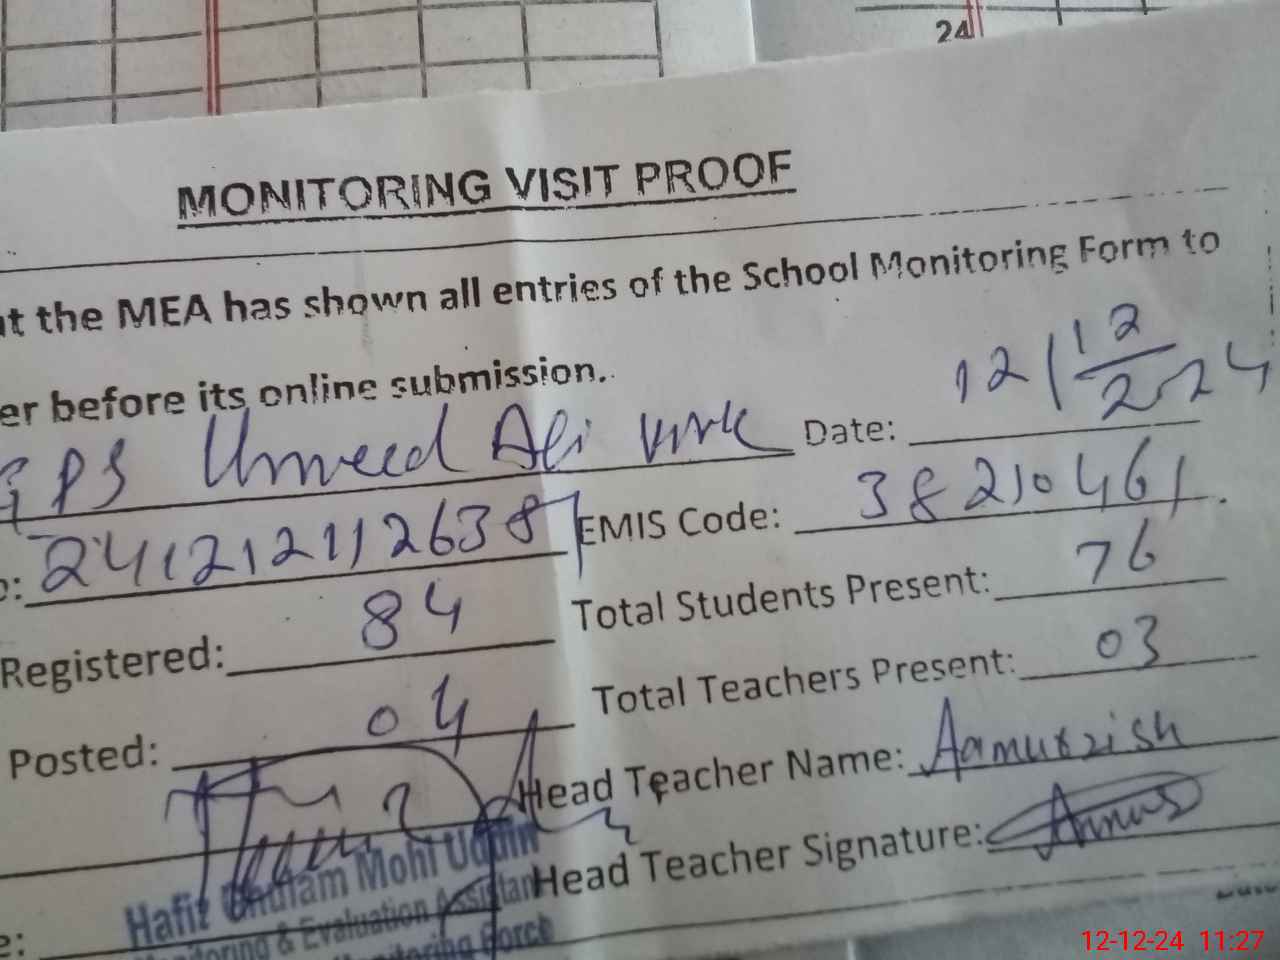 24
MONITORING VISIT PROOF
at the MEA has shown all entries of the School Monitoring Form to
er before its online submission.
GPS Umeed Ali Virk Date: 12/12/2024
o: 2412121126387 EMIS Code: 38210461
Registered: 84 Total Students Present: 76
Posted: 04 Total Teachers Present: 03
Head Teacher Name:
Head Teacher Signature:
Hafiz Ghulam Mohi Uddin
Monitoring & Evaluation Assistant
Monitoring Force
e:
12-12-24 11:27